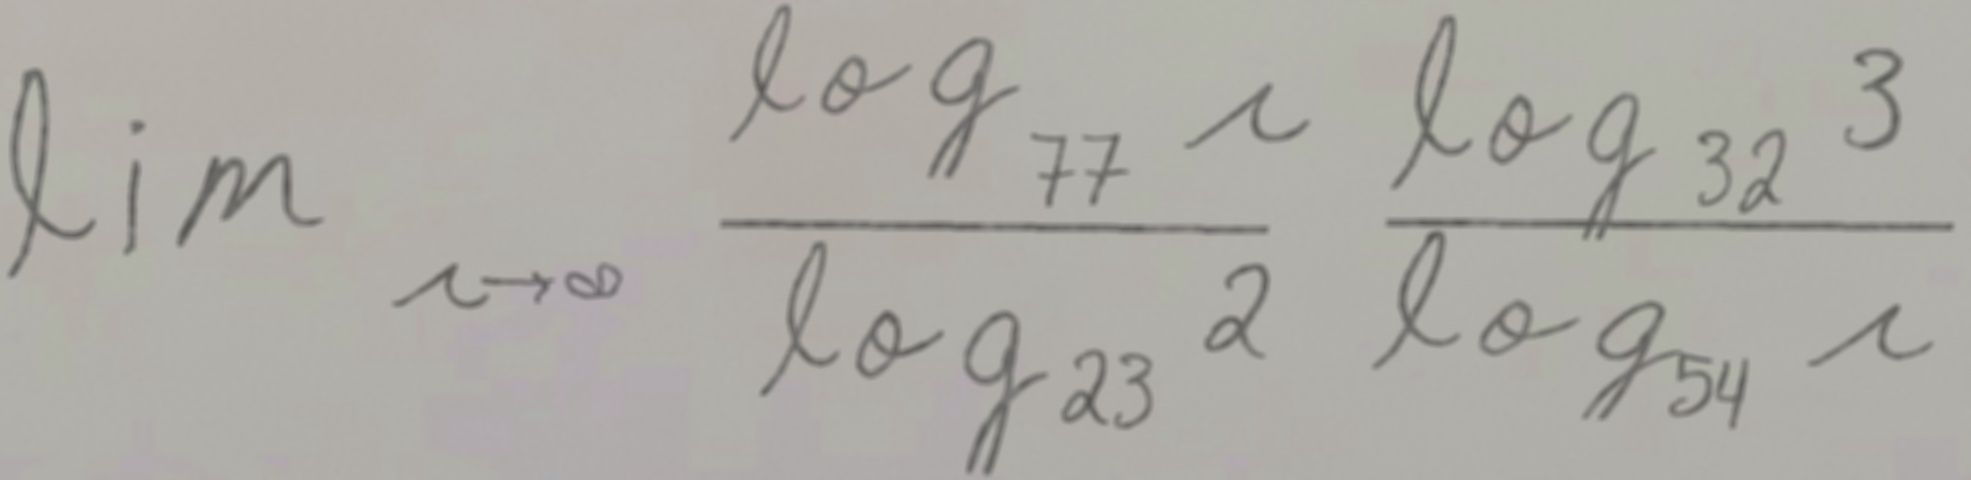 \lim_{r \to \infty} \frac{\log_{77} r}{\log_{23} 2} \frac{\log_{32} 3}{\log_{54} r}